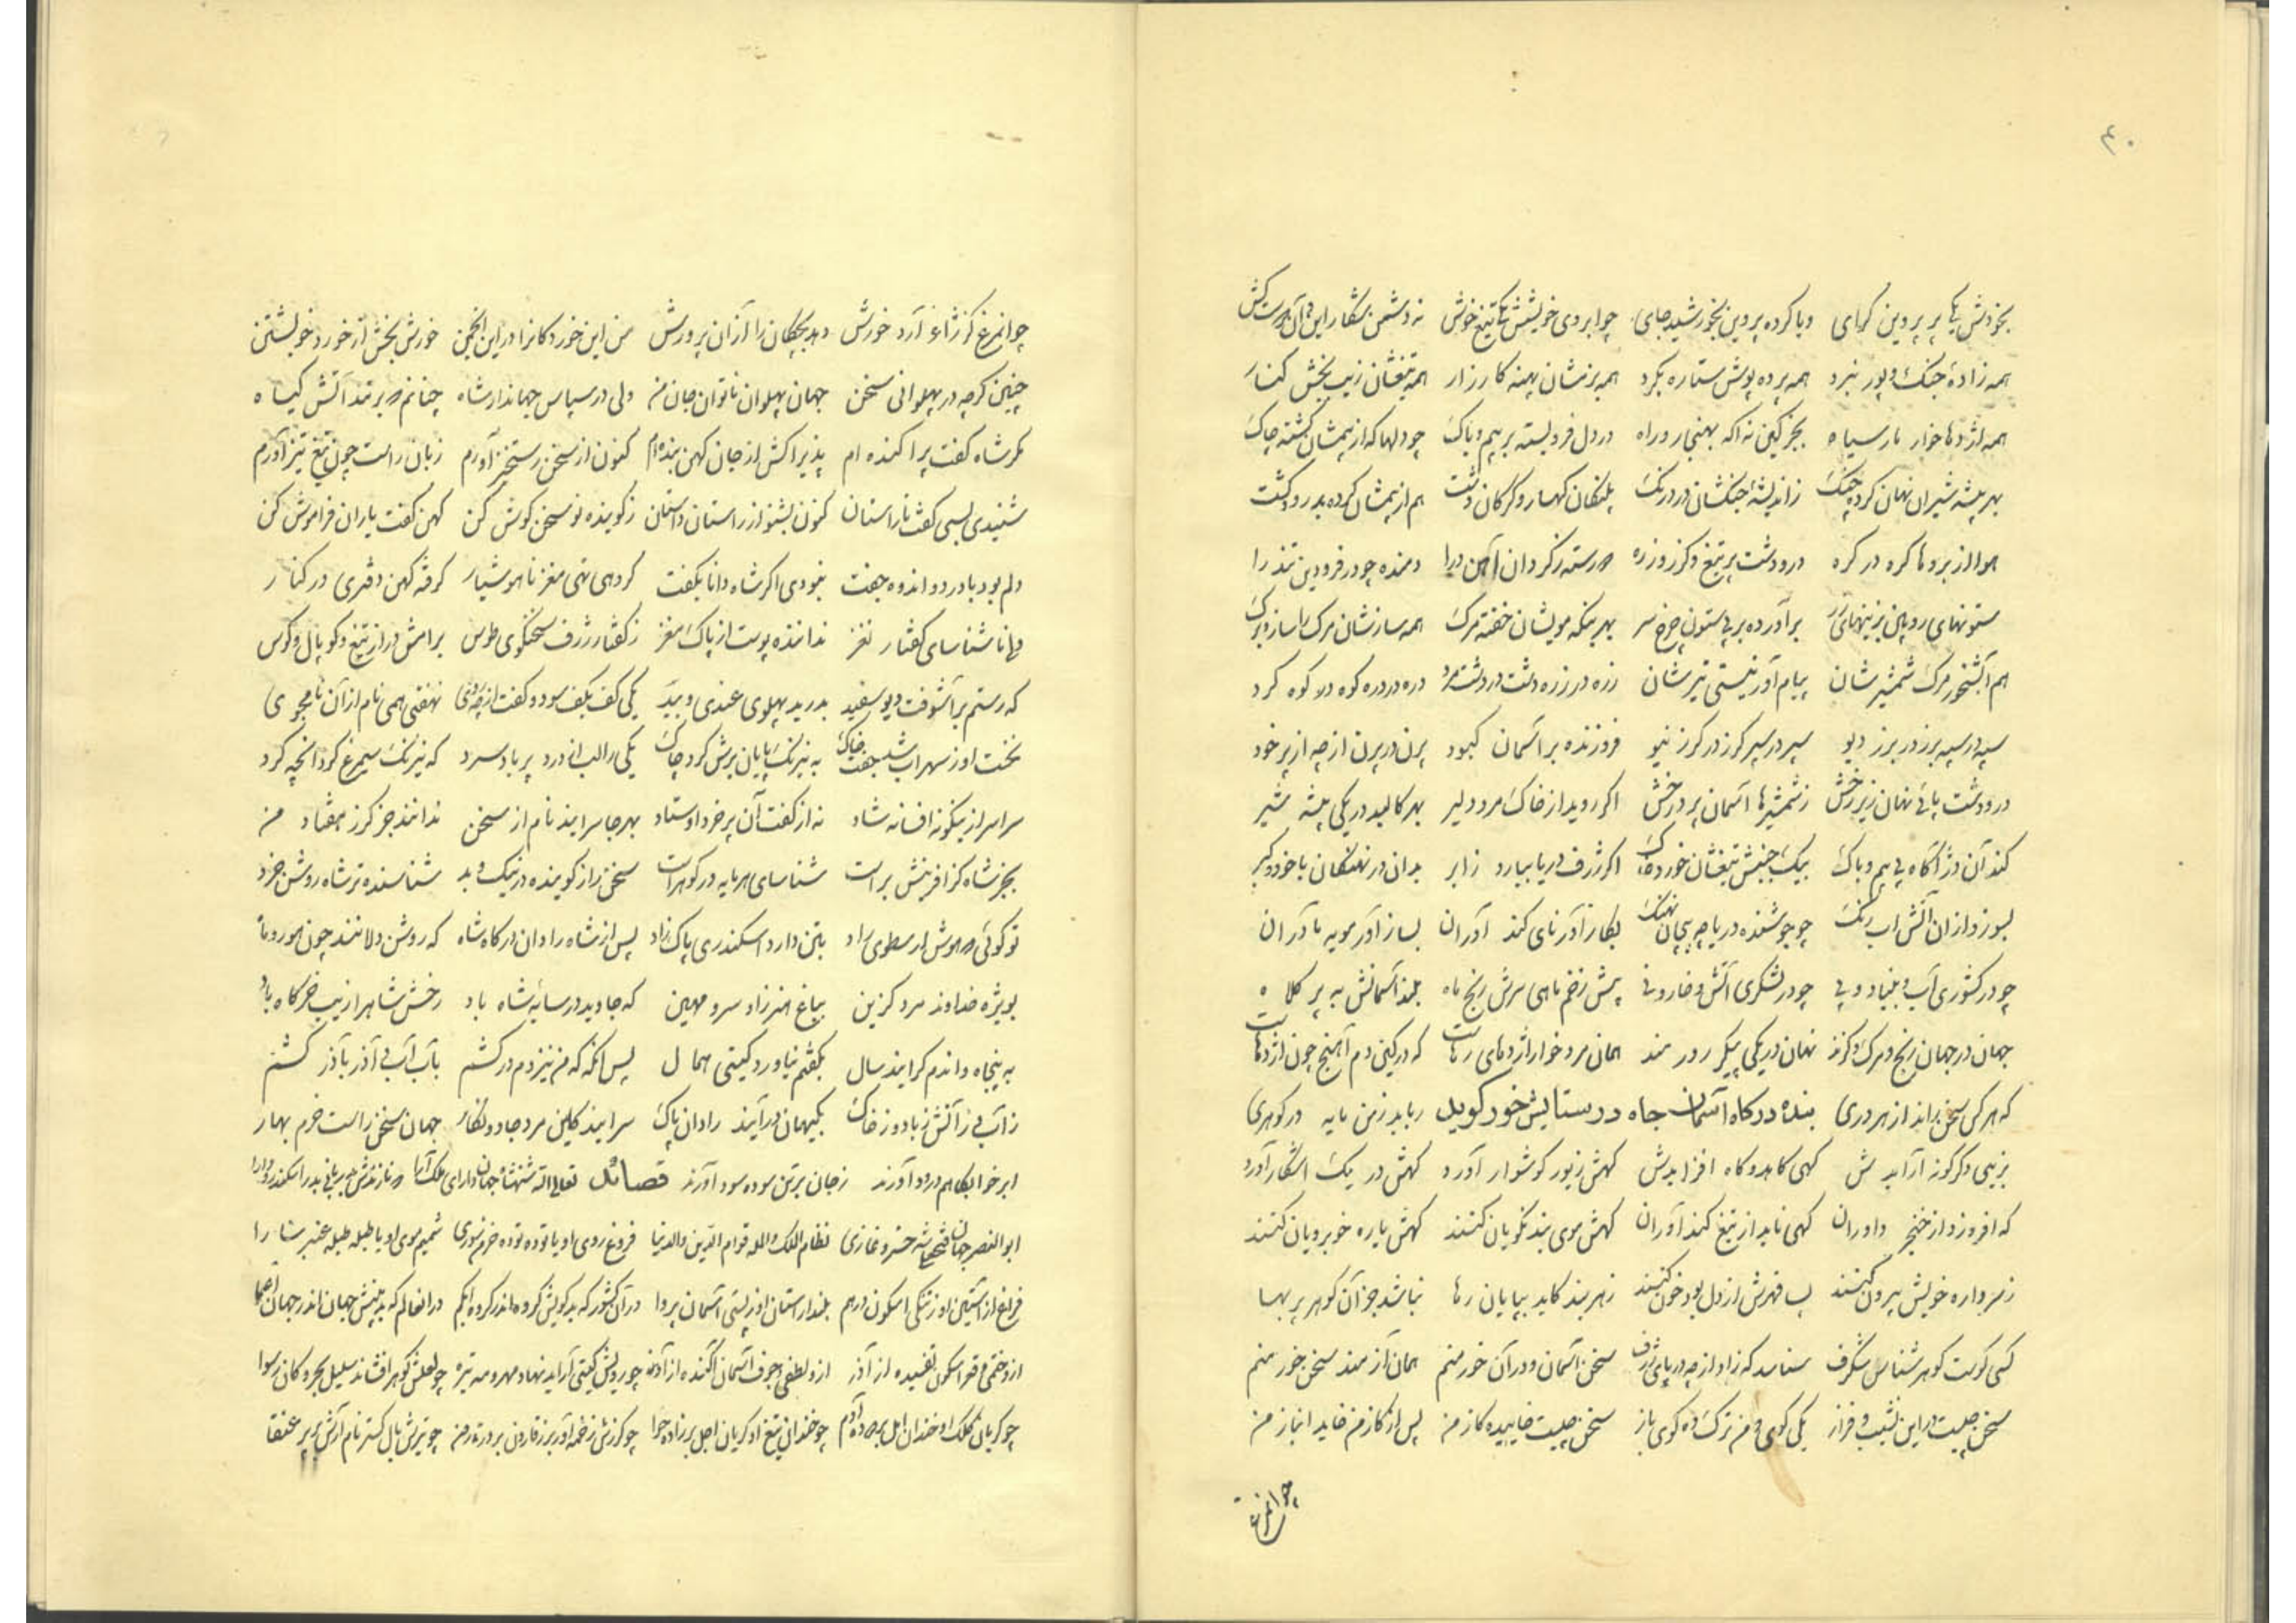 ۴۰
بخودش یکایک پر پروین گرای ویا کرده پروین بخورشید جای چو ابروی خویشش یکا تیغ خوش نه دشمن شکار این و آن دوست کش
همه زادهٔ جنک و پور نبرد همه پرده پوش ستاره بکرد همه بزمشان پهنه کارزار همه تیغشان زیب بخش کنار
همه اژدها خوار مار سیاه بجز کین نه آکه بهنجار و راه در دل فرو بسته بر بیم و باک چو دلها که از بیمشان کشته چاک
بهر بیشه شیران نهان کرده چنک ز اندیشهٔ جنکشان در درنک پلنکان کهسار و کرکان دشت هم از بیمشان کرده بدرود کشت
هوا از بروها کره در کره در و دشت پر تیغ و کرز و زره رسته ز کردان آهن درا دمنده چو در فرودین تندرا
ستونهای رویین بر آورده بر بی ستون چرخ سر بهر بنکه مویشان خفته مرک همه سازشان مرک را ساز و برک
هم آبشخور مرک شمشیرشان پیام آور نیستی تیرشان زره در زره دشت در دشت مرد دره در دره کوه در کوه کرد
سپه در سپه برز در برز دیو سپر در سپر کرز در کرز نیو فروزنده بر آسمان کبود پرن در پرن از چه از پر خود
در و دشت پائی نهان زیر رخش ز شمشیرها آسمان پر درخش اکر روید از خاک مرد دلیر بهر کالبد در یکی بیشه شیر
کند آن دژ آکاه بی بیم و باک بیک جنبش تیغشان خورد خاک اکر ژرف دریا ببارد ز ابر بدان در نهنکان با خود و کبر
بسوزد از آن آتش آب رنک چو جوشنده دریا چه پیچان نهنک بکار آذر نای کند آوران بساز آور مویه مادران
چو در کشوری آب و بنیاد و پی چو در لشکری آتش و خار و نی پیش زخم ماهی سرش رنج ماه بلند آسمانش به پر کلاه
جهان در جهان رنج و مرک و کزند نهان در یکی پیکر زورمند همان مرد خوار اژدهای رهاست که در کین دم آهنج چون اژدهاست
که هر کس سخن راند از هر دری بنده درکاه آسمان جاه در ستایش خود کوید رباید ز من مایه در کوهری
بزیبی دکر کونه آرایدش کهی کاهد و کاه افزایدش کهش زیور کوشوار آورد کهش در یک آشکار آورد
که افروزد از خنجر داوران کهی تابد از تیغ کند آوران کهش موی بند نکویان کنند کهش یاره خوبرویان کنند
ز مرداره خویش بیرون کنند بس قهرش از دل پود خون کنند ز هر بند کاید بپایان رها نباشد جز آن کوهر پر بها
کسی کوست کوهر شناس شکرف شناسد که زاد از چه دریای ژرف سخن آسمان و در آن خور منم همان آزمند سخن جور منم
سخن چیست در این نشیب و فراز یکی کوی و من ترک ده کوی باز سخن چیست خاییده کاز من پس از کاز من خاید انباز من
چو آنمرغ
چو آنمرغ کز ژاغ آرد خورش دهد بچکان را از آن پرورش من این خوردکانرا در این انجمن خورش بخش از خورد خویشتن
چنین کرچه در پهلوانی سخن جهان پهلوان ناتوان جان من ولی در سپاس جهاندار شاه چنانم که بر تند آتش کیاه
مکر شاه کفت پراکنده ام پذیرا کش از جان کهن بنده ام کنون از سخن رستخیز آورم زبان راست چون تیغ تیز آورم
شنیدی بسی کفت ناراستان کنون بشنو از راستان داستان ز کوینده نو سخن کوش کن کهن کفت یاران فراموش کن
دلم بود با درد و اندوه جفت نبودی اکر شاه دانا بکفت کروهی تهی مغز ناهوشیار کرفته کهن دفتری در کنار
همانا شناسای کفتار نغز نداننده پوست از پاک مغز ز کفتار ژرف سخنکوی طوس برامش در از تیغ و کوپال و کوس
که رستم بر آشوفت دیو سفید بدرید پهلوی عندی و بید یکی کف بکف سود و کفت از چه روی نهفتی همی نام از آن نامجوی
نخست او ز سهراب شد جفت خاک به نیرنک پایان برش کرد چاک یکی را لب از درد پر باد سرد که نیرنک سیمرغ کرد آنچه کرد
سراسر از بیکونه افسانه شاد نه از کفت آن پر خرد اوستاد بهر جا سرایند نام از سخن ندانند جز کرز هفتاد من
بجز شاه کز آفرینش براست شناسای هر مایه در کوهراست سخن راز کوینده در نیک و بد شناسنده تر شاه روشن خرد
تو کوئی که هوش ارسطوی راد بتن دارد اسکندری پاک زاد پس از شاه رادان درکاه شاه که روشن دلانند چون هور و ماه
بویژه خداوند مرد کزین بباغ هنر زاد سرو مهین که جاوید در سایه شاه باد رخش شاهرا زیب خرکاه باد
به پنجاه و اندم کرایید سال بکفتم نیاورد کیتی همال پس آنکه که من نیز دم درکشم بآب آب بی آذر بآذر کشم
ز آب بی ز آتش ز باد و ز خاک بکیهان در آیند رادان پاک سرایند کاین مرد جادو نکار جهان سخن راست خرم بهار
ابر خوابکاهم درود آورند ز جان برتن سوده سود آورند قصائد تعالی الله شهنشاه جهان دارای ملک آرا که نازندش به در اسکندر و دارا
ابوالنصر جهان فتحعلیشه خسرو غازی نظام الملک والله قوام الدین والدنیا فروغ روی او با توده توده خرمن سوری شمیم موی او با طبله طبله عنبر سارا
فراغ از آستین او ز تنکی اسکون درهم بلند از آستان او ز پستی آسمان پروا در آن کشور که بدکویش کروه اندر کروه ابکم در آنعالم که بد بینش جهان اندر جهان اعما
از و ختمی و قعر اسکون تفسیده از آذر از و لطفی و جوف آسمان آکنده از آذر چو رویش کیتی آراید نهاد مهر و مه تیره چو لعلش کوهر افشاند سلیل بحر و کان رسوا
چو کریان کلک او خندان امل بر چو خندان تیغ او کریان اجل بر زاده حوا چو کرزش زخمه آور برز قارون چو تیرش بال کستر نام آرش بر پر عنقا